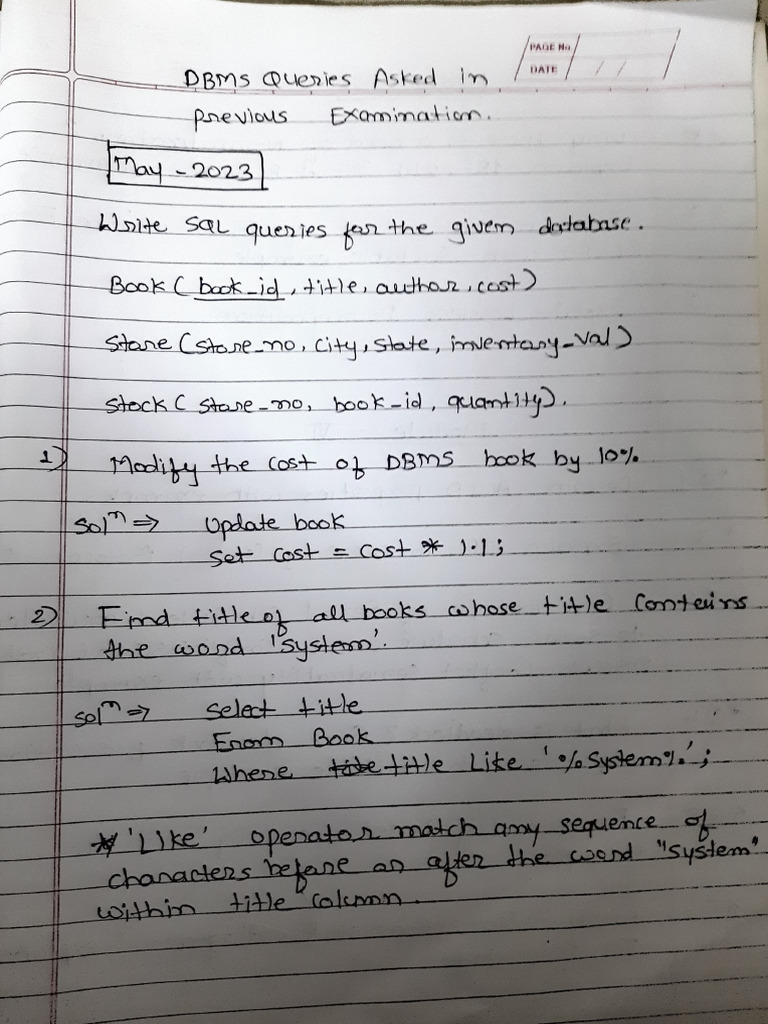 PAGE No.
DATE / /
DBMS Queries Asked in
previous Examination.
May - 2023
Write SQL queries for the given database.
Book ( book_id, title, author, cost)
Store (store_no, city, state, inventory_val)
Stock ( store_no, book_id, quantity).
1) Modify the cost of DBMS book by 10%
Solⁿ ⇒ Update book
Set cost = cost * 1.1;
2) Find title of all books whose title contains
the word 'System'.
Solⁿ ⇒ Select title
From Book
Where title Like '%System%';
* 'Like' operator match any sequence of
characters before or after the word "System"
within title column.